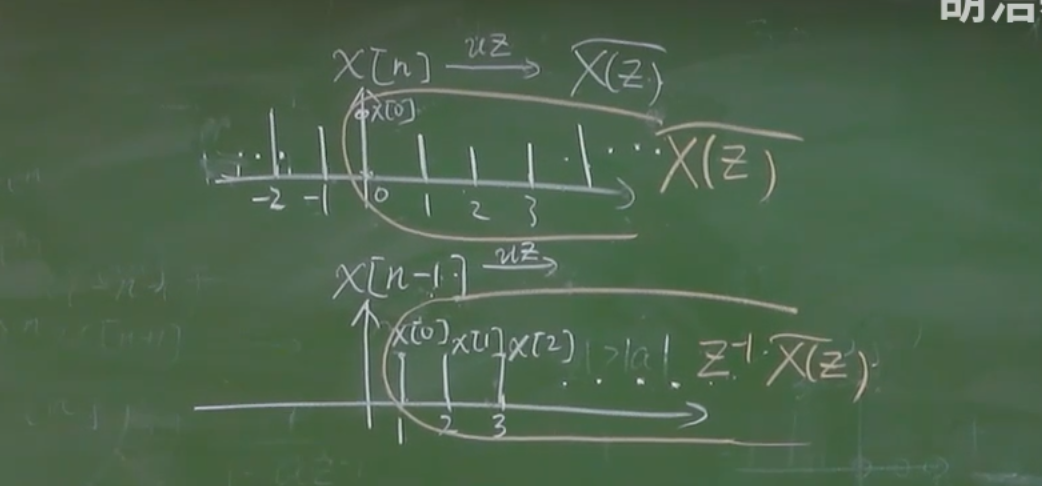 明治
x[n] uZ X(Z)
x[0]
X(Z)
-2 -1 0 1 2 3
x[n-1] uZ
x[0] x[1] x[2] |>|a| Z⁻¹·X(Z)
1 2 3